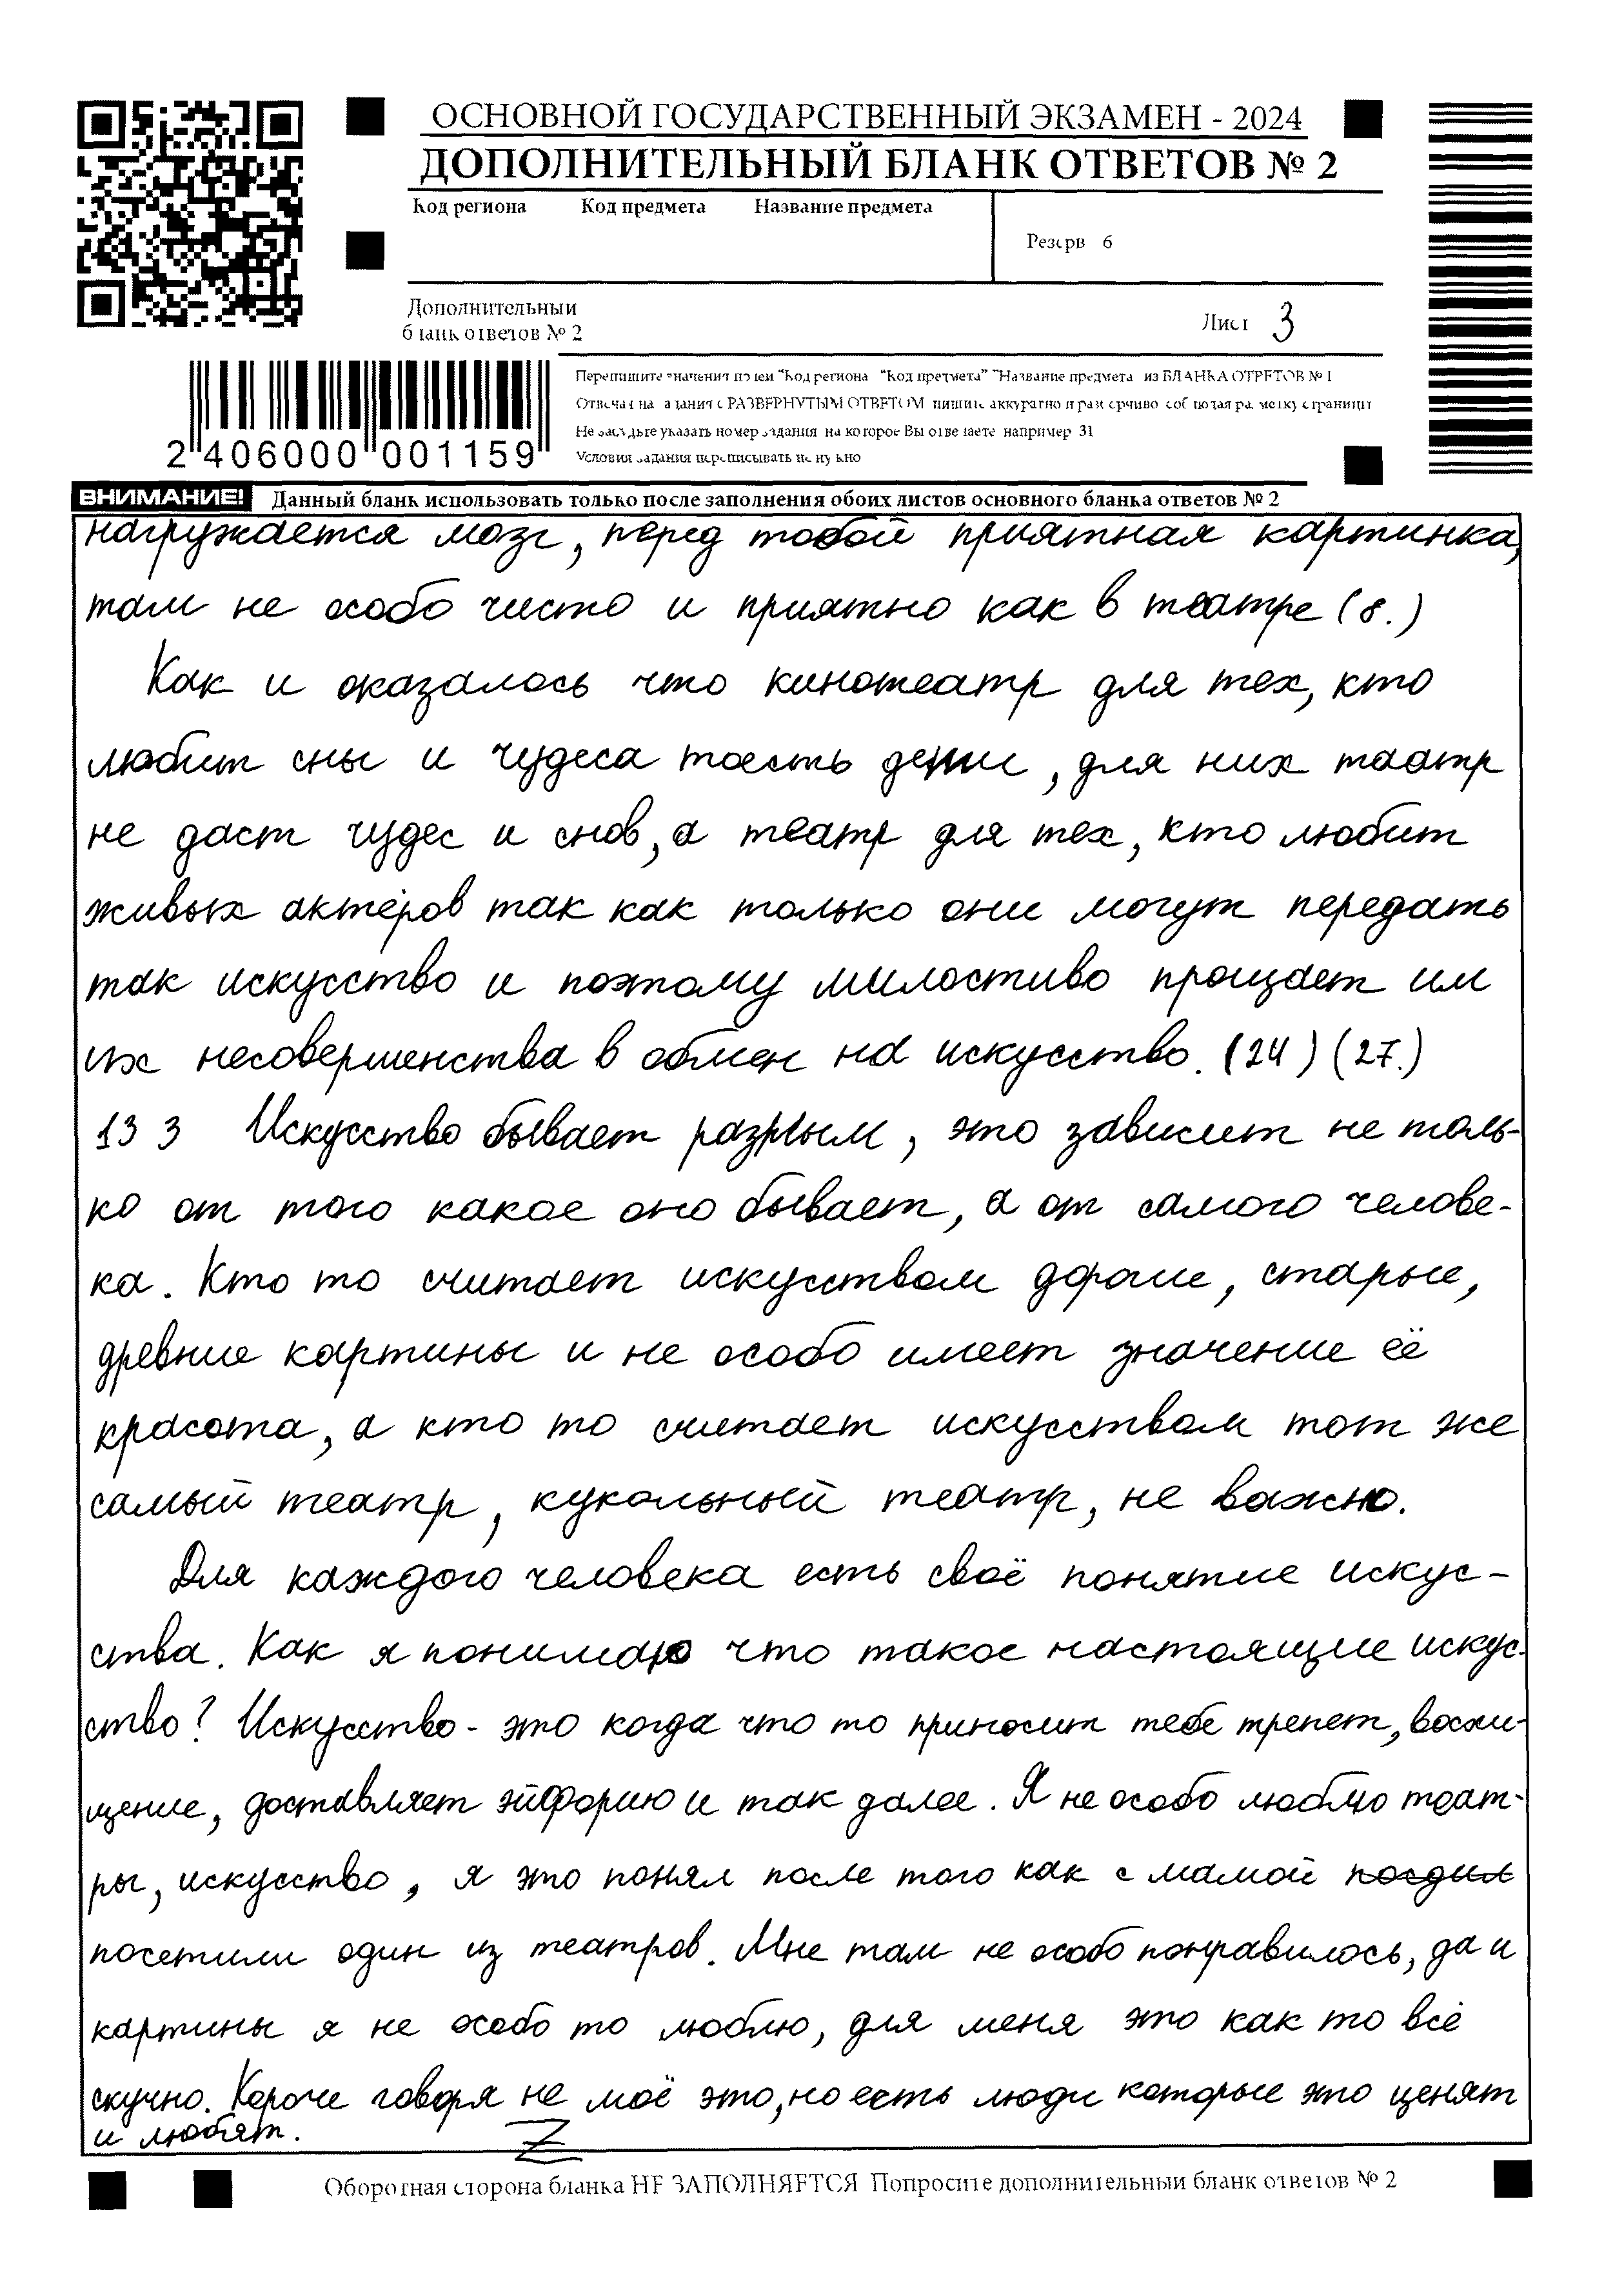 ОСНОВНОЙ ГОСУДАРСТВЕННЫЙ ЭКЗАМЕН - 2024
ДОПОЛНИТЕЛЬНЫЙ БЛАНК ОТВЕТОВ № 2
Код региона Код предмета Название предмета
Резерв 6
Дополнительный
бланк ответов № 2
Лист 3
Перепишите значения полей "Код региона" "Код предмета" "Название предмета" из БЛАНКА ОТВЕТОВ № 1
Отвечая на задания с РАЗВЕРНУТЫМ ОТВЕТОМ пишите аккуратно и разборчиво соблюдая разметку страницы
Не забудьте указать номер задания на которое Вы отвечаете например 31
Условия задания переписывать не нужно
2 406000 001159
ВНИМАНИЕ! Данный бланк использовать только после заполнения обоих листов основного бланка ответов № 2
нагружается мозг, перед тобой приятная картинка,
там не особо чисто и приятно как в театре (8.)
Как и оказалось что кинотеатр для тех, кто
любит сны и чудеса тоесть дети, для них таатр
не даст чудес и снов, а театр для тех, кто любит
живых актёров так как только они могут передать
так искусство и поэтому милостиво прощает им
их несовершенства в обмен на искусство. (24) (27.)
13 3 Искусство бывает разным, это зависит не толь-
ко от того какое оно бывает, а от самого челове-
ка. Кто то считает искусством дорогие, старые,
древние картины и не особо имеет значение её
красота, а кто то считает искусством тот же
самый театр, кукольный театр, не важно.
Для каждого человека есть своё понятие искус-
ства. Как я понимаю что такое настоящие искус-
ство? Искусство - это когда что то приносит тебе трепет, восхи-
щение, доставляет эйфорию и так далее. Я не особо люблю театр-
ры, искусство, я это понял после того как с мамой
посетили один из театров. Мне там не особо понравилось, да и
картины я не особо то люблю, для меня это как то всё
скучно. Короче говоря не моё это, но есть люди которые это ценят
и любят. Z
Оборотная сторона бланка НЕ ЗАПОЛНЯЕТСЯ Попросите дополнительный бланк ответов № 2